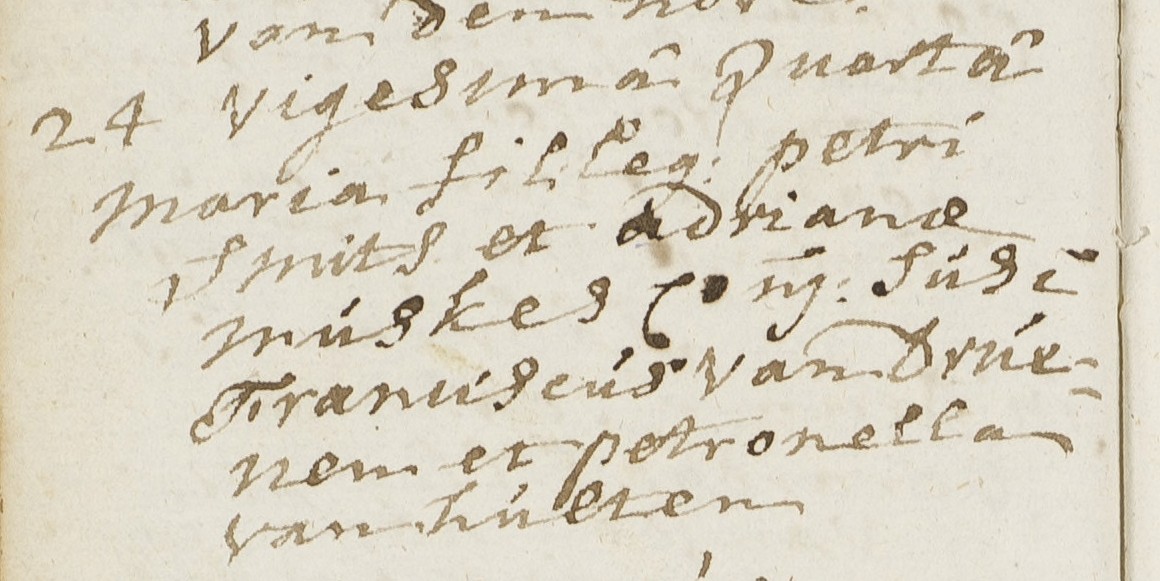 van den hove.
24 vigesimâ Quartâ
maria fil. leg. petri
Smits et adrianæ
múskes Conj. Sús:
Francúscús van Drúe-
nem et petronella
van húlten